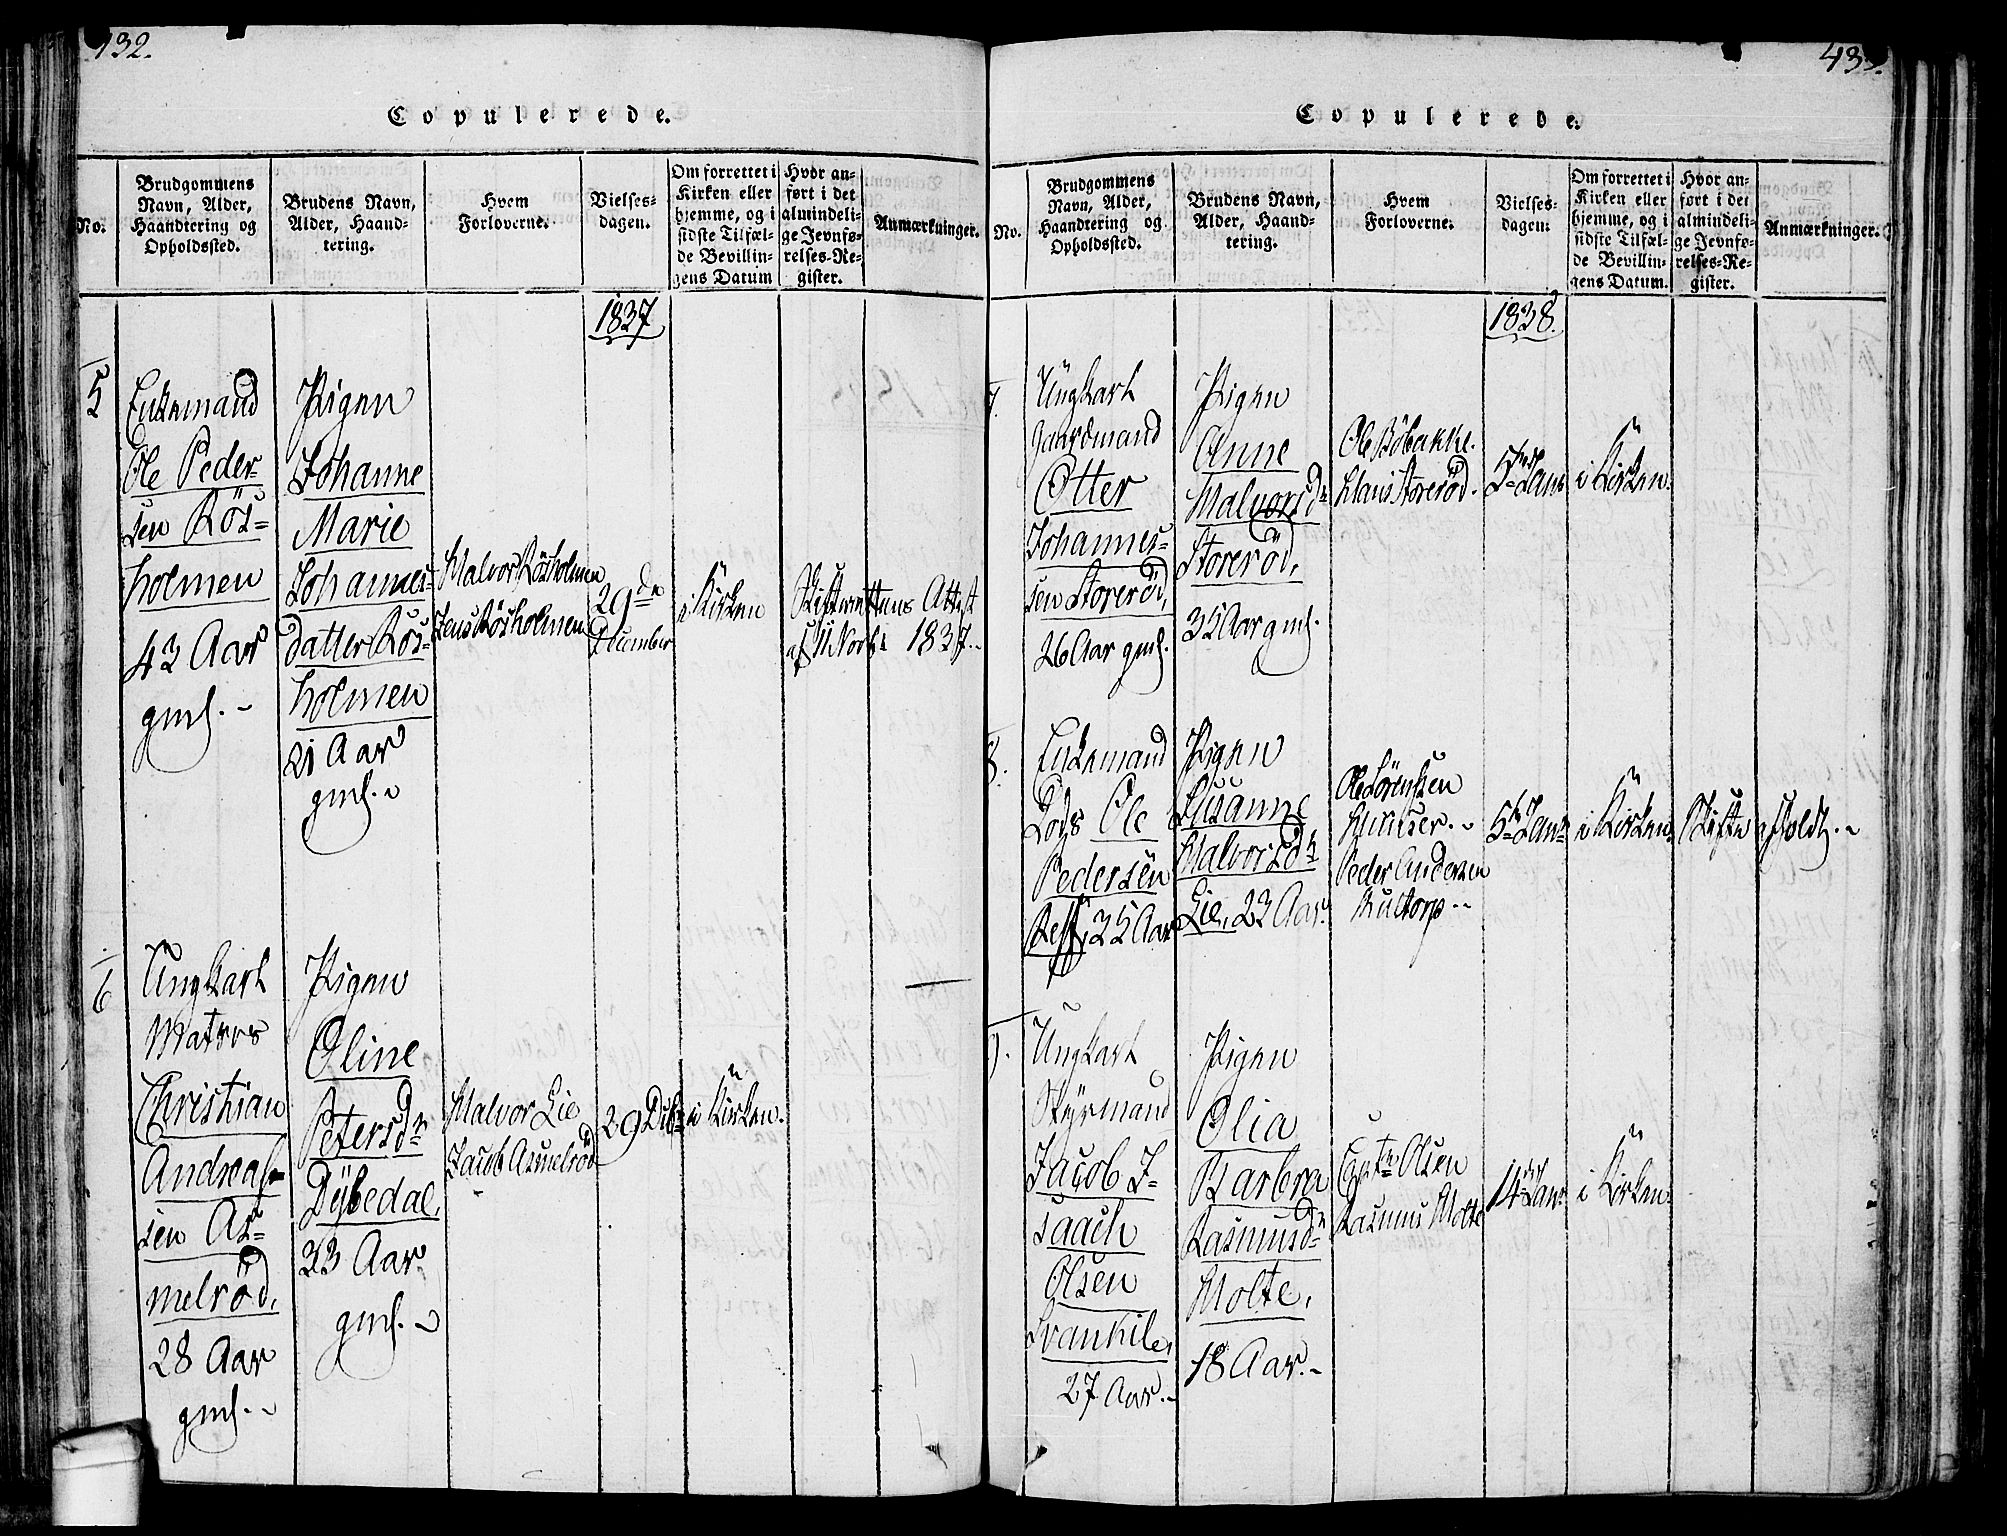 432.
Copulerede.
No.
Brudgommens
Navn, Alder,
Haandtering og
Opholdssted.
Brudens Navn,
Alder, Haand-
tering.
Hvem
Forloverne.
Vielses-
dagen.
Om forrettet i
Kirken eller
hjemme, og i
sidste Tilfæl-
de Bevillin-
gens Datum
Hvor an-
ført i det
almindeli-
ge Jevnfø-
relses-Re-
gister.
Anmærkninger.
1837
5
Enkemand
Ole Peder-
sen Rös-
holmen
42 Aar
gml.
Pigen
Johanne
Marie
Johannes-
datter Rös-
holmen
21 Aar
gml.
Halvor Rösholmen
Jens Rösholmen
29de
December
i Kirken
Skifterettens Attest
af 11 Novbr 1837.
6
Ungkarl
Matros
Christian
Andreas-
sen As-
melröd,
28 Aar
gml.
Pigen
Oline
Petersdr
Dÿbedal,
33 Aar
gml.
Halvor Lie
Jacob Asmelröd
29 Dcbr
i Kirken.
433.
Copulerede.
No.
Brudgommens
Navn, Alder,
Haandtering og
Opholdssted.
Brudens Navn,
Alder, Haand-
tering.
Hvem
Forloverne.
Vielses-
dagen.
Om forrettet i
Kirken eller
hjemme, og i
sidste Tilfæl-
de Bevillin-
gens Datum.
Hvor an-
ført i det
almindeli-
ge Jevnfø-
relses-Re-
gister.
Anmærkninger.
1838.
7.
Ungkarl
Gaardmand
Otter
Johannes-
sen Storeröd,
26 Aar gml.
Pigen
Anne
Halvorsdr
Storeröd,
35 Aar gml.
Ole Böbakke.
Hans Storeröd.
5te Janr
i Kirken.
8.
Enkemand
Lods Ole
Pedersen
Reff, 35 Aar
Pigen
Susanne
Halvorsdr
Lie, 23 Aar
Ole Sörensen
Peder Andersen
5te Janr
i Kirken
Skifte afholdt.
9.
Ungkarl
Styrmand
Jacob I-
saach
Olsen
Svankile,
27 Aar.
Pigen
Olia
Barbra
Rasmusdr
Holte,
18 Aar.
Captn Olsen
Rasmus Holte
14de Janr
i Kirken.